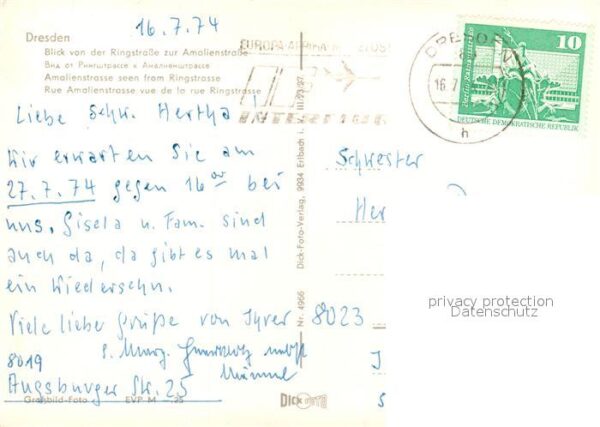 16.7.74
Dresden
Blick von der Ringstraße zur Amalienstraße
Вид от Рингштрассе к Амалиенштрассе
Amalienstrasse seen from Ringstrasse
Rue Amalienstrasse vue de la rue Ringstrasse
Liebe Schw. Hertha!
Wir erwarten Sie am
27.7.74 gegen 16 00 bei
uns. Gisela u. Fam. sind
auch da, da gibt es mal
ein Wiedersehn.
Viele liebe Grüße von Ihrer
s. Marg. nebst
8019 Männel
Augsburger Str. 25
Greßbild-Foto EVP M -,25
Dick-Foto-Verlag, 9934 Erlbach i. V. III/23/27
Nr. 4966
Dick FOTO
EUROPA-AFRIKA
INTERFLUG
DRESDEN
16.7.
h
10
DEUTSCHE DEMOKRATISCHE REPUBLIK
Schwester
Her
8023
J
S
privacy protection
Datenschutz